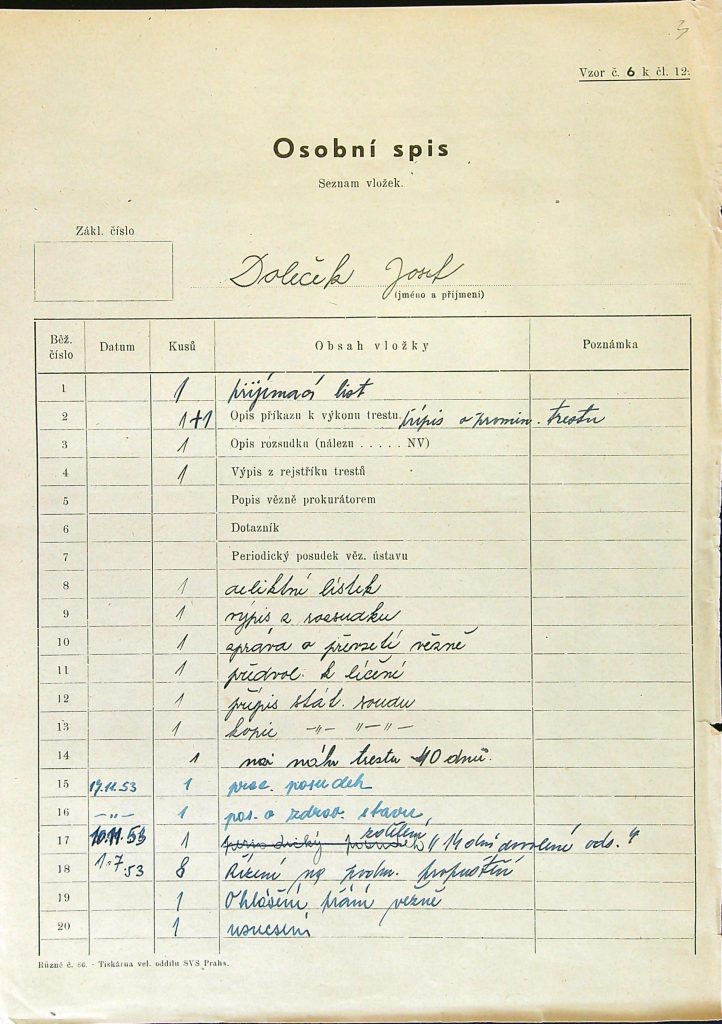 3
Vzor č. 6 k čl. 12:
Osobní spis
Seznam vložek.
Zákl. číslo
Doleček Josef
(jméno a příjmení)
Běž. číslo Datum Kusů Obsah vložky Poznámka
1 1 přijímací list
2 1+1 Opis příkazu k výkonu trestu, přípis o promin. trestu
3 1 Opis rozsudku (nálezu . . . . . NV)
4 1 Výpis z rejstříku trestů
5 Popis vězně prokurátorem
6 Dotazník
7 Periodický posudek věz. ústavu
8 1 deliktní lístek
9 1 výpis z rozsudku
10 1 zpráva o převzetí vězně
11 1 předvol. k líčení
12 1 přípis stát. soudu
13 1 kopie -"- "-"-
14 1 trestu 10 dnů.
15 19.11.53 1 prac. posudek
16 -"- 1 pos. o zdrav. stavu
17 10.11.53 1 "14 dní dovolené ods."
18 1.7.53 8 Řízení na podm. propuštění
19 1 Ohlášení přání vězně
20 1 usnesení
Různé č. 66. - Tiskárna vel. oddílu SVS Praha.